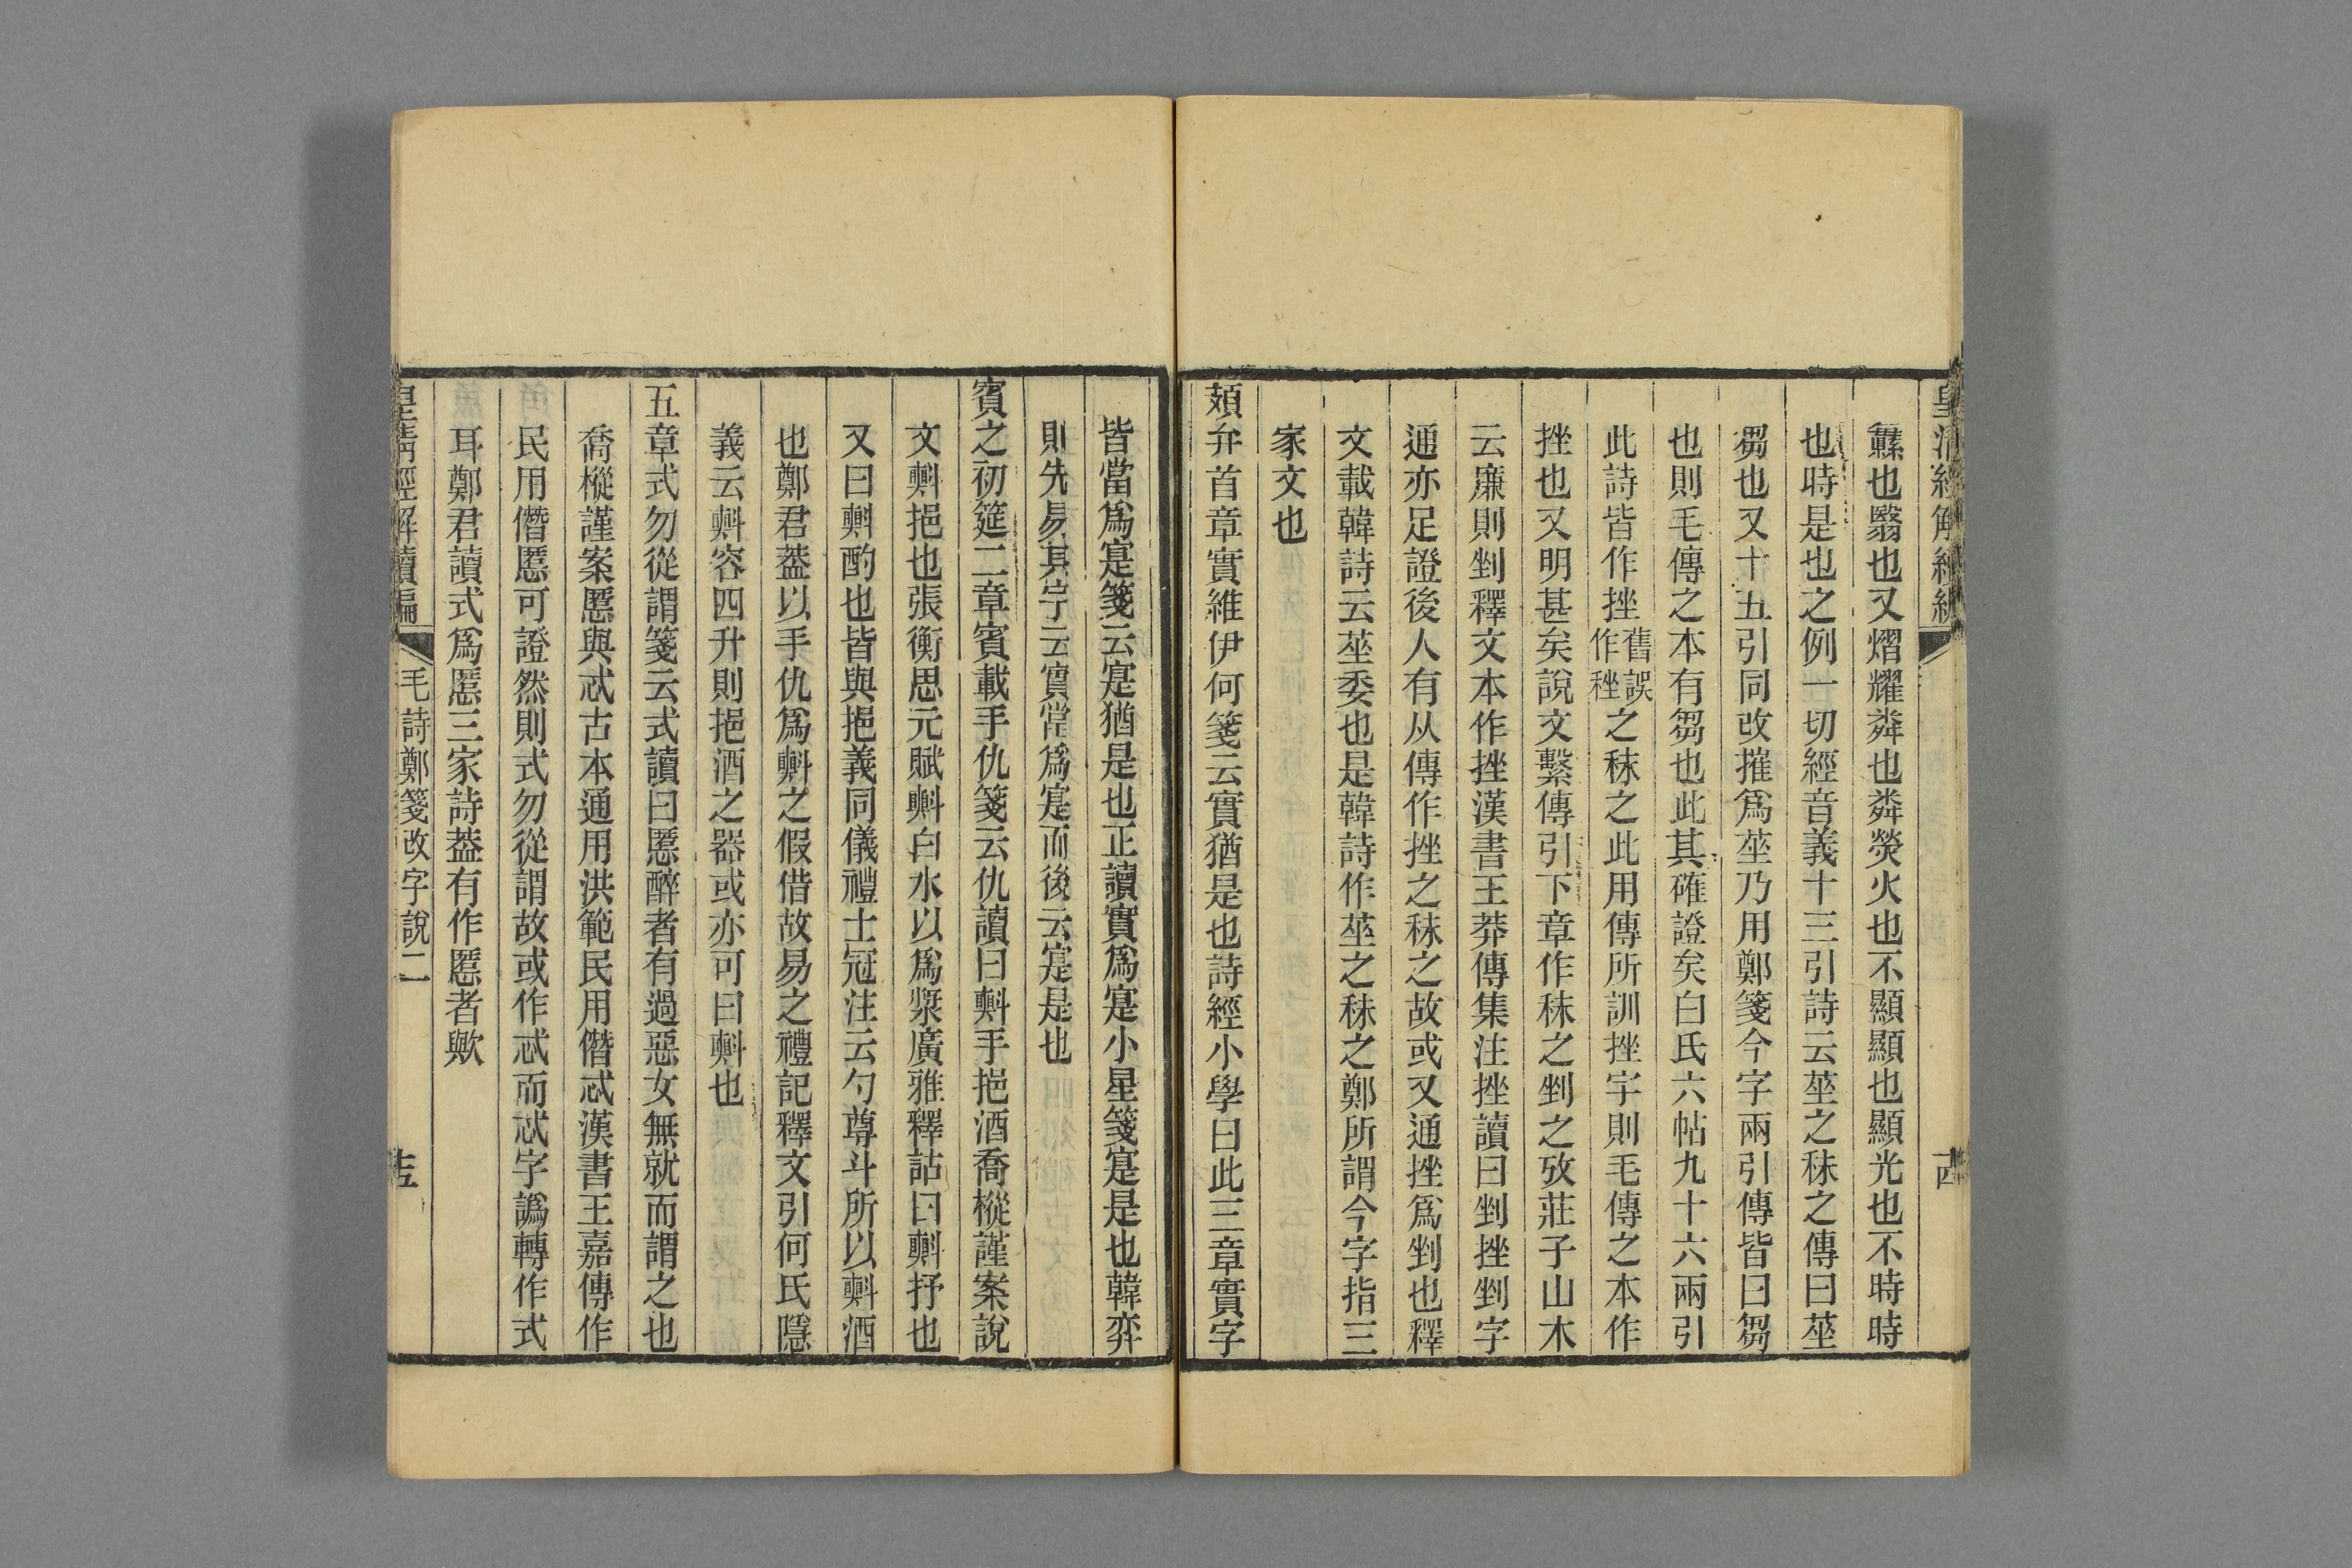 纛也翳也又熠耀粦也粦熒火也不顯顯也顯光也不時時
也時是也之例一切經音義十三引詩云莝之秣之傳曰莝
芻也又十五引同改摧爲莝乃用鄭箋今字兩引傳皆曰芻
也則毛傳之本有芻也此其確證矣白氏六帖九十六兩引
此詩皆作挫舊誤作矬之秣之此用傳所訓挫字則毛傳之本作
挫也又明甚矣說文繫傳引下章作秣之剉之攷莊子山木
云廉則剉釋文本作挫漢書王莽傳集注挫讀曰剉挫剉字
通亦足證後人有从傳作挫之秣之故或又通挫爲剉也釋
文載韓詩云莝委也是韓詩作莝之秣之鄭所謂今字指三
家文也
頍弁首章實維伊何箋云實猶是也詩經小學曰此三章實字
皆當爲寔箋云寔猶是也正讀實爲寔小星箋寔是也韓弈
則先易其字云實當爲寔而後云寔是也
賓之初筵二章賓載手仇箋云仇讀曰㪺手挹酒喬樅謹案說
文㪺挹也張衡思元賦㪺白水以爲漿廣雅釋詁曰㪺抒也
又曰㪺酌也皆與挹義同儀禮士冠注云勺尊斗所以㪺酒
也鄭君葢以手仇爲㪺之假借故易之禮記釋文引何氏隱
義云㪺容四升則挹酒之器或亦可曰㪺也
五章式勿從謂箋云式讀曰慝醉者有過惡女無就而謂之也
喬樅謹案慝與忒古本通用洪範民用僭忒漢書王嘉傳作
民用僭慝可證然則式勿從謂故或作忒而忒字譌轉作式
耳鄭君讀式爲慝三家詩葢有作慝者歟
皇清經解續編　毛詩鄭箋改字說二